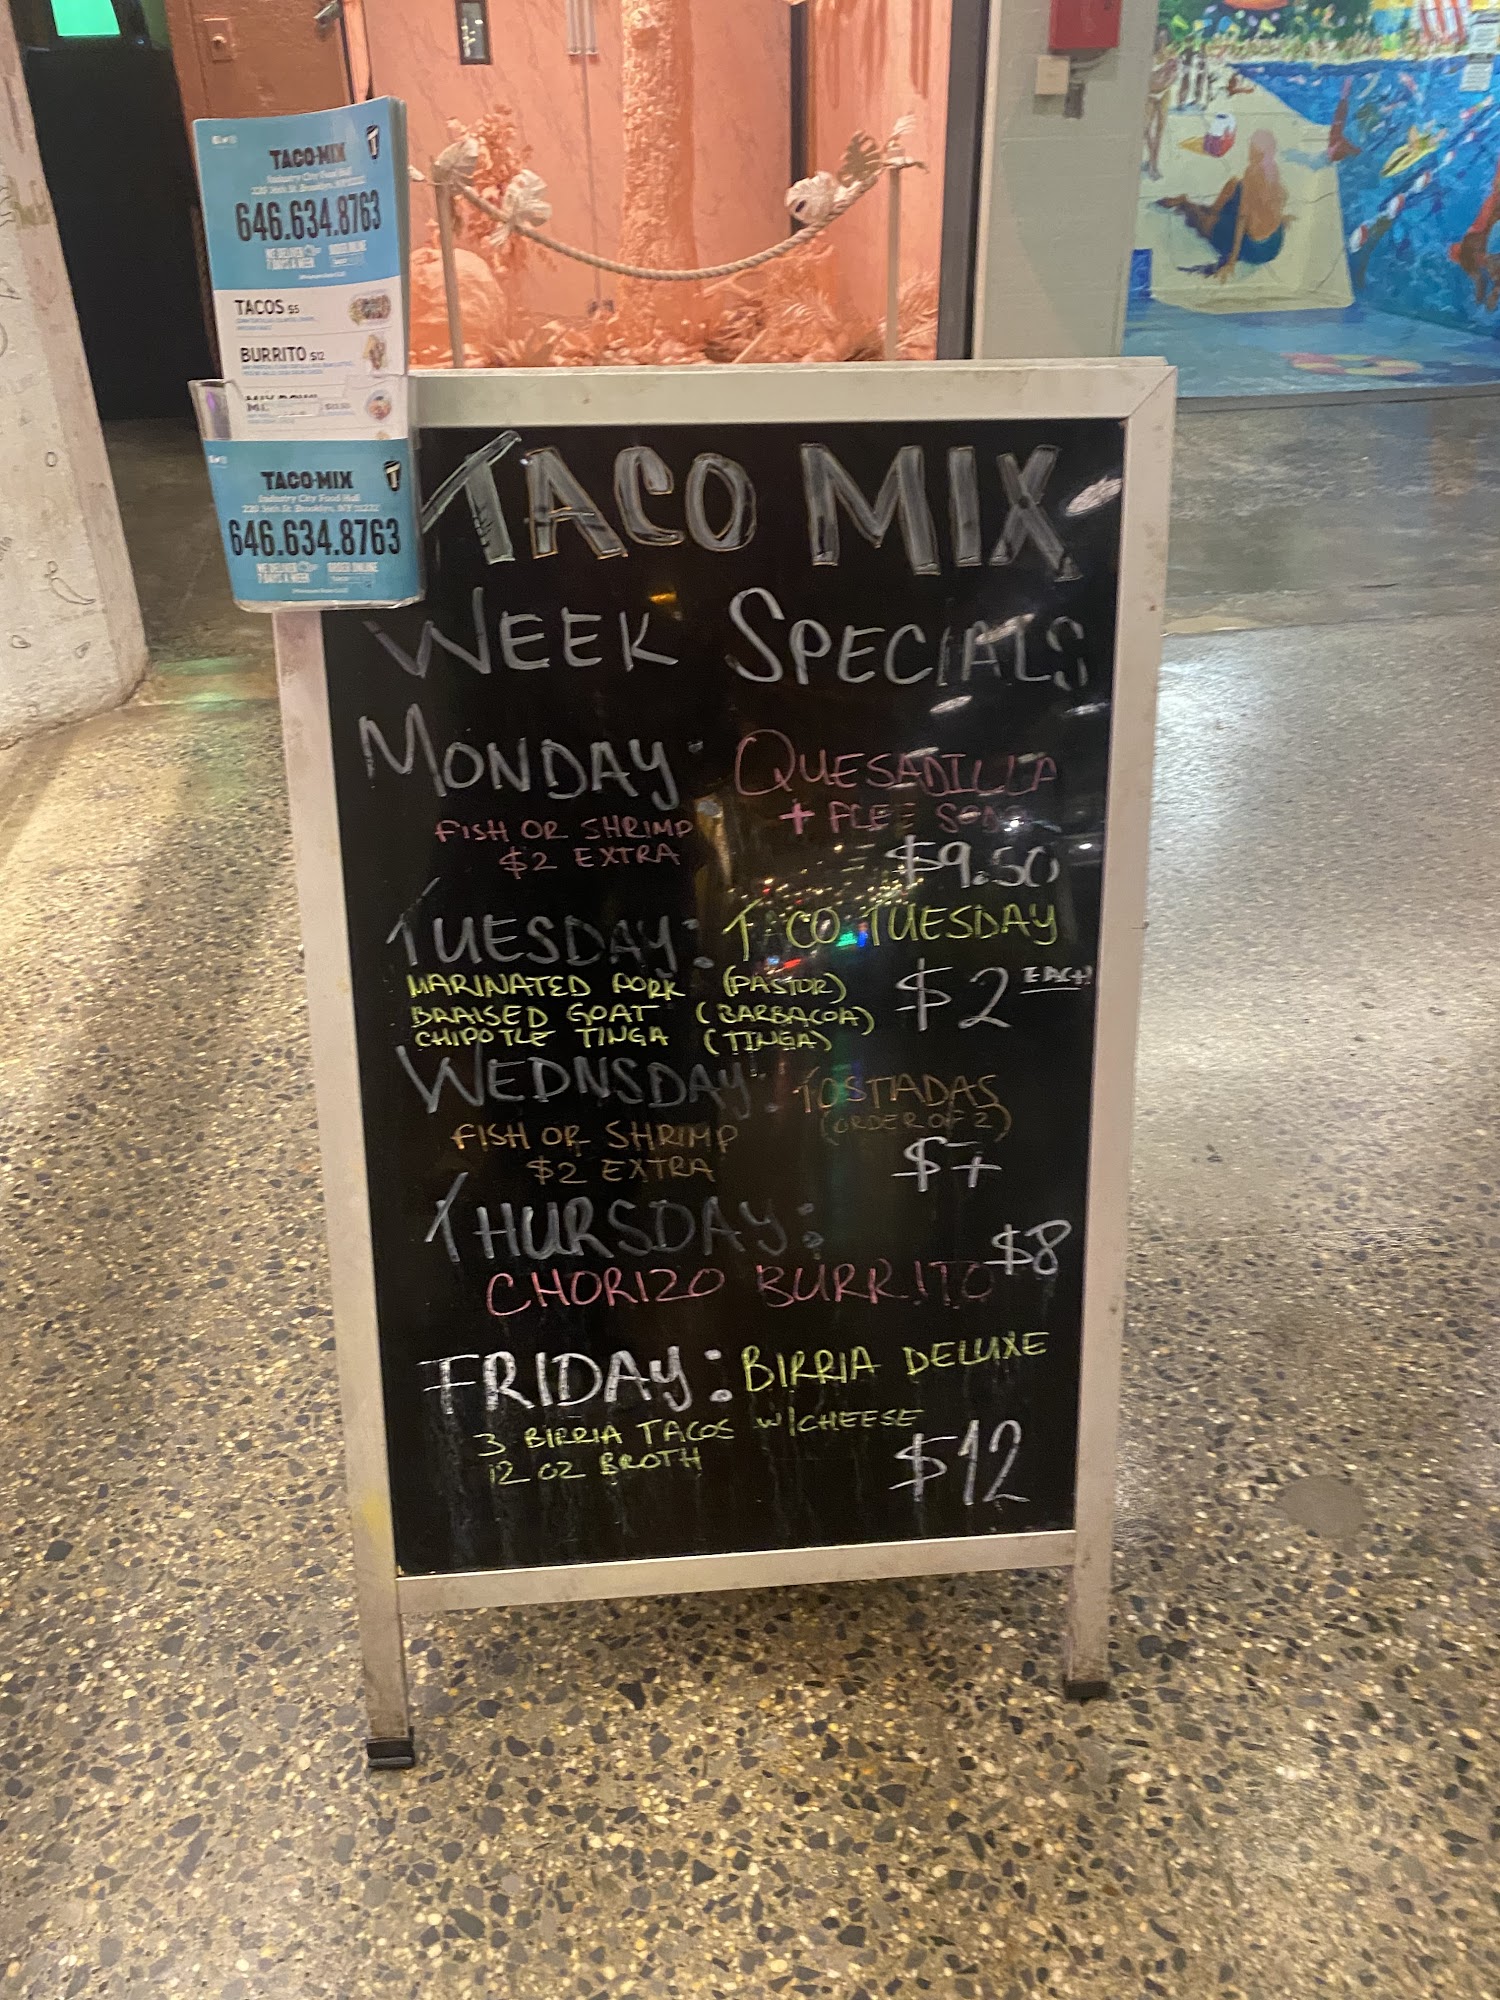 TACO MIX
Industry City Food Hall
646.634.8763
WE DELIVER
7 DAYS A WEEK
ORDER ONLINE
TACOS $5
BURRITO $12
TACO MIX
Industry City Food Hall
220 36th St. Brooklyn, NY 11232
646.634.8763
WE DELIVER
7 DAYS A WEEK
ORDER ONLINE
TACO MIX
WEEK SPECIALS
MONDAY: QUESADILLA
+ FREE SODA
FISH OR SHRIMP
$2 EXTRA
$9.50
TUESDAY: TACO TUESDAY
MARINATED PORK (PASTOR)
BRAISED GOAT (BARBACOA)
CHIPOTLE TINGA (TINGA)
$2 EACH
WEDNSDAY: TOSTIADAS
(ORDER OF 2)
FISH OR SHRIMP
$2 EXTRA
$7
THURSDAY:
CHORIZO BURRITO $8
FRIDAY: BIRRIA DELUXE
3 BIRRIA TACOS W/CHEESE
12 OZ BROTH
$12